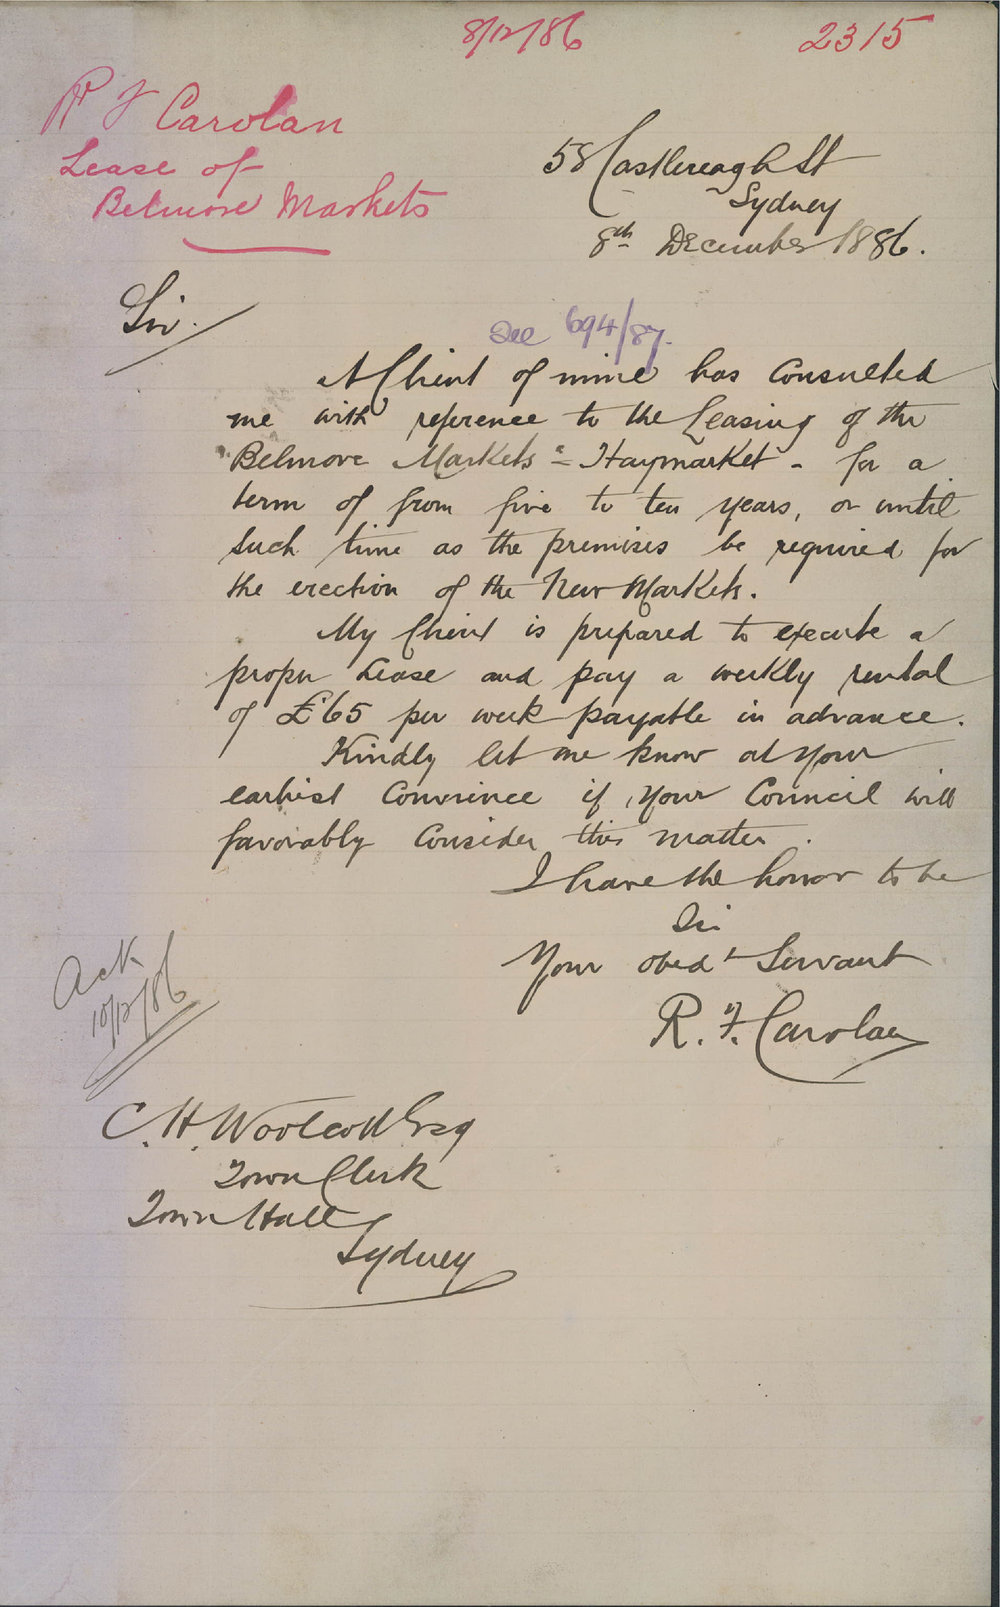 8/12/86
2315
R F Carolan
Lease of
Belmore Markets
58 Castlereagh St
Sydney
8th December 1886.
Sir.
See 694/87.
A Client of mine has consulted
me with reference to the Leasing of the
"Belmore Markets" - Haymarket - for a
term of from five to ten years, or until
such time as the premises be required for
the erection of the New Markets.
My Client is prepared to execute a
proper Lease and pay a weekly rental
of £65 per week payable in advance.
Kindly let me know at your
earliest convience if your Council will
favorably consider this matter.
I have the honor to be
Sir
Your obedt Servant
R. F. Carolan
Ack
10/12/86
C. H. Woolcott Esq
Town Clerk
Town Hall
Sydney